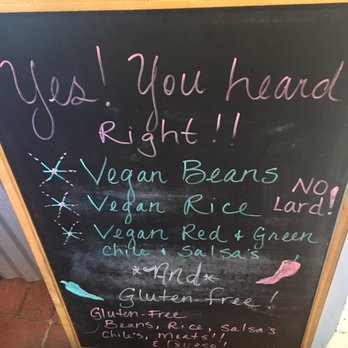 Yes! You heard
Right!!
Vegan Beans
Vegan Rice
NO
Lard!
Vegan Red & Green
chile & Salsa's
*And*
Gluten-free!
Gluten-Free
Beans, Rice, Salsa's
Chile's, Meats!!
&